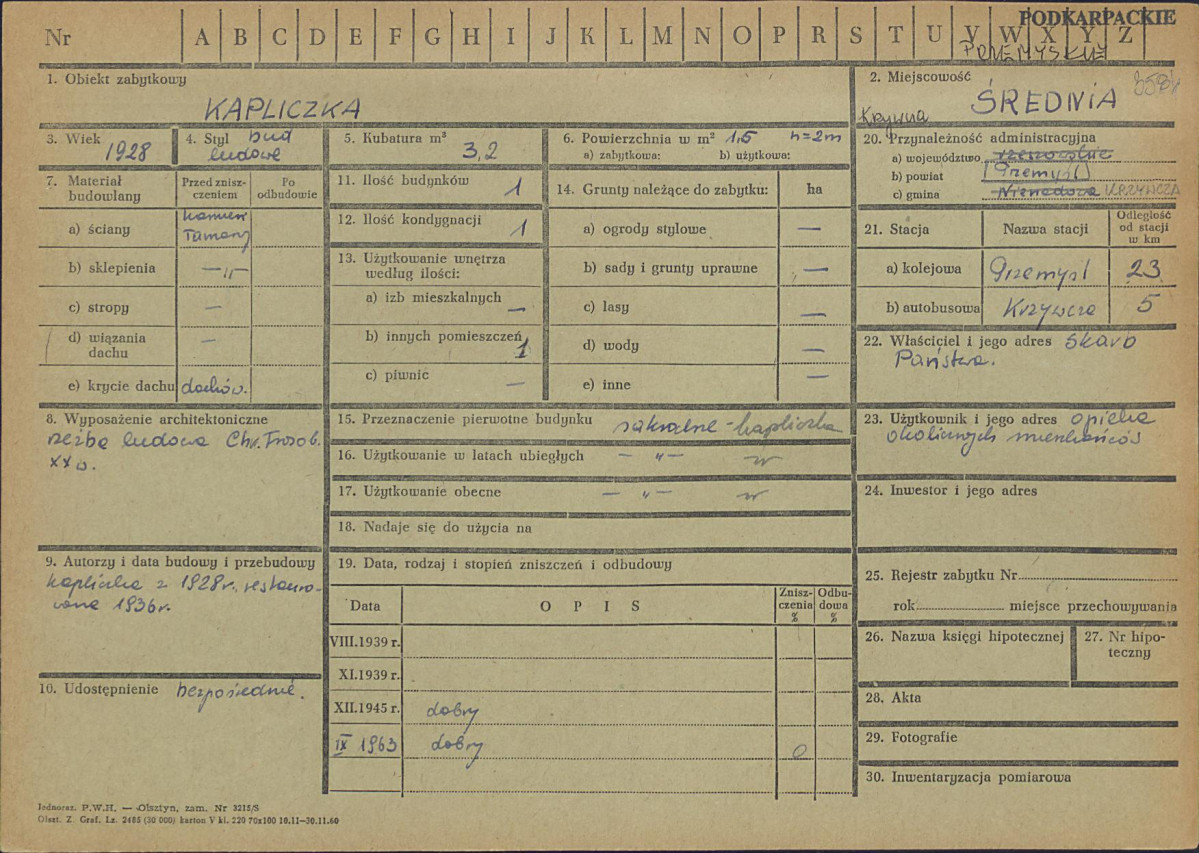 Nr A B C D E F G H I J K L M N O P R S T U V W X Y Z
PODKARPACKIE
PRZEMYSKIE
1. Obiekt zabytkowy
KAPLICZKA
2. Miejscowość
ŚREDNIA
Krzywcza
3. Wiek
1928
4. Styl bud
ludowe
5. Kubatura m³
3,2
6. Powierzchnia w m² 1,5 h=2m
a) zabytkowa: b) użytkowa:
20. Przynależność administracyjna
a) województwo rzeszowskie
b) powiat (Przemyśl)
c) gmina Nienadowa KRZYWCZA
7. Materiał
budowlany
Przed znisz-
czeniem
Po
odbudowie
a) ściany
kamień
łamany
b) sklepienia — „ —
c) stropy —
d) wiązania
dachu —
e) krycie dachu dachów.
11. Ilość budynków 1
12. Ilość kondygnacji 1
13. Użytkowanie wnętrza
według ilości:
a) izb mieszkalnych —
b) innych pomieszczeń 1
c) piwnic —
14. Grunty należące do zabytku: ha
a) ogrody stylowe —
b) sady i grunty uprawne —
c) lasy —
d) wody —
e) inne —
21. Stacja Nazwa stacji Odległość
od stacji
w km
a) kolejowa Przemyśl 23
b) autobusowa Krzywcza 5
22. Właściciel i jego adres Skarb
Państwa.
8. Wyposażenie architektoniczne
rzeźba ludowa Chr. Frasob.
XX w.
15. Przeznaczenie pierwotne budynku sakralne - kapliczka
16. Użytkowanie w latach ubiegłych — „ — „
17. Użytkowanie obecne — „ — „
18. Nadaje się do użycia na
23. Użytkownik i jego adres opieka
okolicznych mieszkańców
24. Inwestor i jego adres
9. Autorzy i data budowy i przebudowy
kapliczka z 1928r., restauro-
wana 1936r.
10. Udostępnienie bezpośrednie.
19. Data, rodzaj i stopień zniszczeń i odbudowy
Data OPIS Znisz-
czenia
% Odbu-
dowa
%
VIII.1939 r.
XI.1939 r.
XII.1945 r. dobry
IX 1963 dobry 0
25. Rejestr zabytku Nr
rok miejsce przechowywania
26. Nazwa księgi hipotecznej
27. Nr hipo-
teczny
28. Akta
29. Fotografie
30. Inwentaryzacja pomiarowa
Jednoraz. P.W.H. — Olsztyn, zam. Nr 3215/S
Olszt. Z. Graf. Lz. 2405 (30 000) karton V kl. 220 70x100 10.11—30.11.60